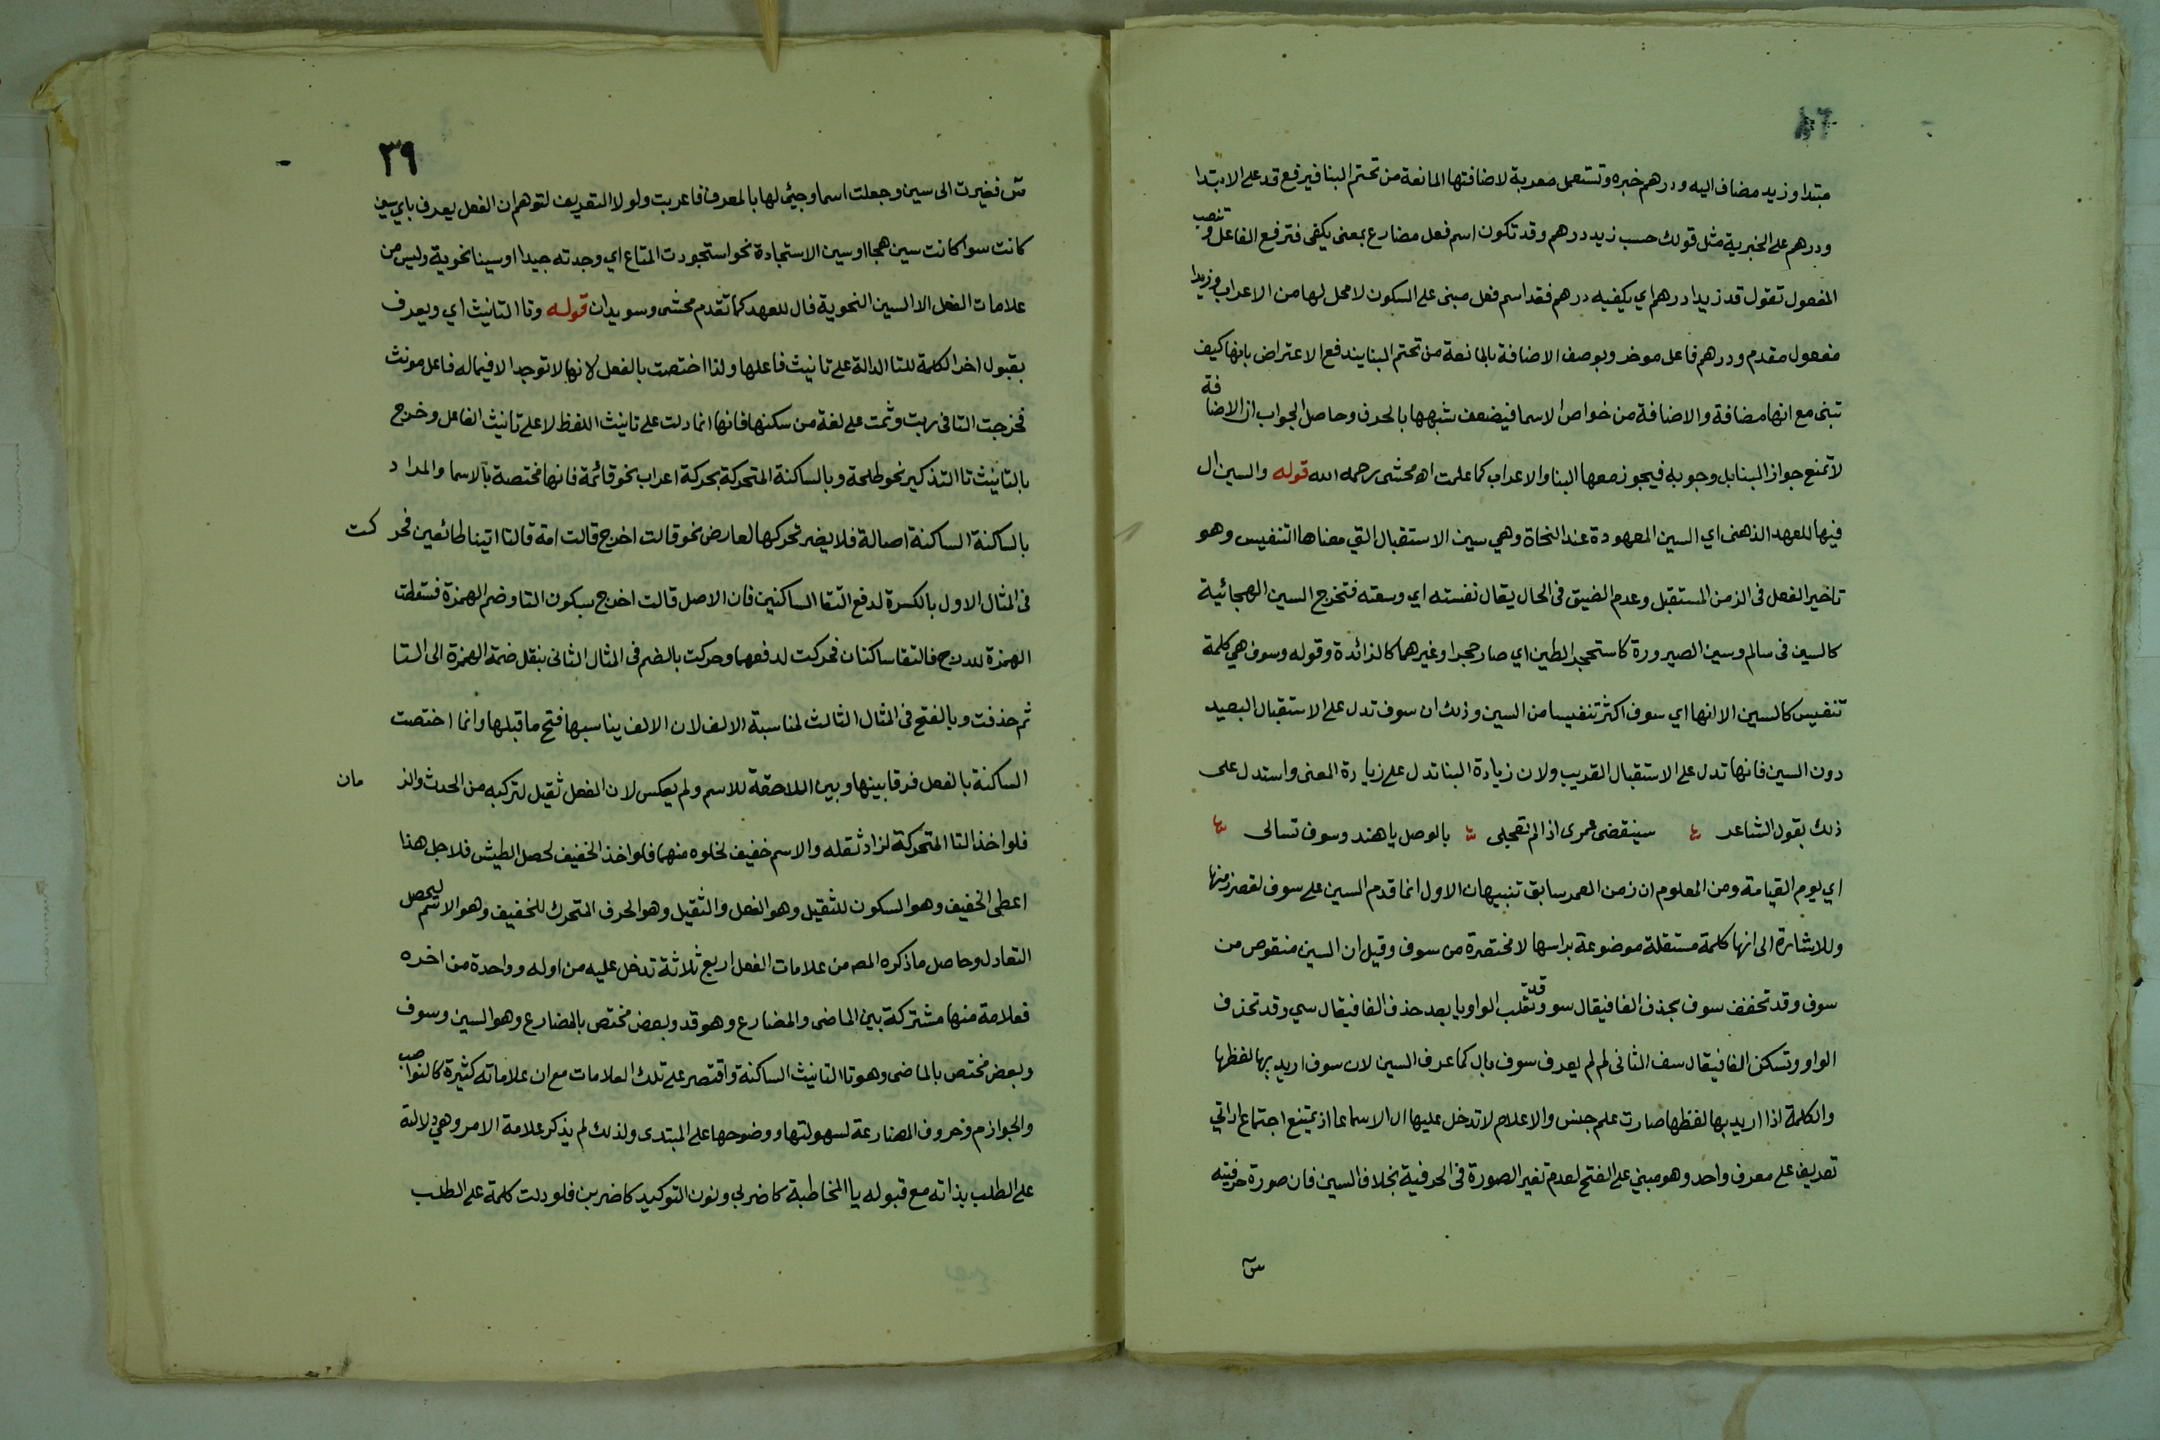 مبتدا وزيد مضاف اليه ودرهم خبره وتستعمل معربة لاضافتها المانعة من تحتم البنا فيرفع قد على الابتدا
ودرهم على الخبرية مثل قولك حسب زيد درهم وقد تكون اسم فعل مضارع بمعنى يكفى فترفع الفاعل وتنصب
المفعول تقول قد زيدا درهم اي يكفيه درهم فقد اسم فعل مبنى على السكون لا محل لها من الاعراب وزيدا
مفعول مقدم ودرهم فاعل موخر وبوصف الاضافة بالمانعة من تحتم البنا يندفع الاعتراض بانها كيف
تبنى مع انها مضافة والاضافة من خواص الاسما فيضعف شبهها بالحرف وحاصل الجواب ان الاضافة
لا تمنع جواز البنا بل وجوبه فيجوز معها البنا والاعراب كما علمت اه محشى رحمه الله قوله والسين ال
فيها للعهد الذهنى اي السين المعهودة عند النحاة وهي سين الاستقبال التي معناها التنفيس وهو
تاخير الفعل فى الزمن المستقبل وعدم الضيق فى الحال يقال نفسته اي وسعته فتخرج السين الهجائية
كالسين فى سالم وسين الصيرورة كاستحجر الطين اي صار حجرا وغيرهما كالزائدة وقوله وسوف هي كلمة
تنفيس كالسين الا انها اي سوف اكثر تنفيسا من السين وذلك ان سوف تدل على الاستقبال البعيد
دون السين فانها تدل على الاستقبال القريب ولان زيادة البنا تدل على زيادة المعنى واستدل على
ذلك بقول الشاعر سينقضى عمرى اذا لم تعجلى بالوصل يا هند وسوف تسالى
اي يوم القيامة ومن المعلوم ان زمن العمر سابق تنبيهان الاول انما قدم السين على سوف لقصر زمنها
وللاشارة الى انها كلمة مستقلة موضوعة براسها لا مختصرة من سوف وقيل ان السين منقوص من
سوف وقد تخفف سوف بحذف الفا فيقال سو وقد تقلب الواو يا بعد حذف الفا فيقال سي وقد تحذف
الواو وتسكن الفا فيقال سف الثانى لم لم يعرف سوف بال كما عرف السين لان سوف اريد بها لفظها
والكلمة اذا اريد بها لفظها صارت علم جنس والاعلام لا تدخل عليها ال الا سماعا اذ يمتنع اجتماع اداتي
تعريف على معرف واحد وهو مبني على الفتح لعدم تغير الصورة فى الحرفية بخلاف السين فان صورة حرفيته
س
٣٩
س فغيرت الى سين وجعلت اسما وجيئ لها بالمعرف فاعربت ولولا التعريف لتوهم ان الفعل يعرف باي سين
كانت سوا كانت سين هجا او سين الاستجادة نحو استجودت المتاع اي وجدته جيدا او سينا نحوية وليس من
علامات الفعل الا السين النحوية فال للعهد كما تقدم محشى وسويدان قوله وتا التانيث اي ويعرف
بقبول اخر الكلمة للتا الدالة على تانيث فاعلها ولذا اختصت بالفعل لانها لا توجد الا فيما له فاعل مونث
فخرجت التا فى ربت وثمت على لغة من سكنها فانها انما دلت على تانيث اللفظ لا على تانيث الفاعل وخرج
بالتانيث تا التذكير نحو طلحة وبالساكنة المتحركة بحركة اعراب نحو قائمة فانها مختصة بالاسما والمراد
بالساكنة الساكنة اصالة فلا يضر تحركها لعارض نحو قالت اخرج قالت امة قالتا اتينا طائعين فحركت
فى المثال الاول بالكسرة لدفع التقا الساكنين فان الاصل قالت اخرج بسكون التا وضم الهمزة فسقطت
الهمزة للدرج فالتقا ساكنان فحركت لدفعهما وحركت بالضم فى المثال الثانى بنقل ضمة الهمزة الى التا
ثم حذفت وبالفتح فى المثال الثالث لمناسبة الالف لان الالف يناسبها فتح ما قبلها وانما اختصت
الساكنة بالفعل فرقا بينها وبين اللاحقة للاسم ولم يعكس لان الفعل ثقيل لتركبه من الحدث والزمان
فلو اخذ التا المتحركة لزاد ثقله والاسم خفيف لخلوه منهما فلو اخذ الخفيف لحصل الطيش فلاجل هذا
اعطى الخفيف وهو السكون للثقيل وهو الفعل والثقيل وهو الحرف المتحرك للخفيف وهو الاسم ليحصل
التعادل وحاصل ما ذكره المصـ من علامات الفعل اربع ثلاثة تدخل عليه من اوله وواحدة من اخره
فعلامة منها مشتركة بين الماضى والمضارع وهو قد وبعض مختص بالمضارع وهو السين وسوف
وبعض مختص بالماضى وهو تا التانيث الساكنة واقتصر على تلك العلامات مع ان علاماته كثيرة كالنواصب
والجوازم وحروف المضارعة لسهولتها ووضوحها على المبتدى ولذلك لم يذكر علامة الامر وهي دلالته
على الطلب بذاته مع قبوله يا المخاطبة كاضربي ونون التوكيد كاضربن فلو دلت كلمة على الطلب